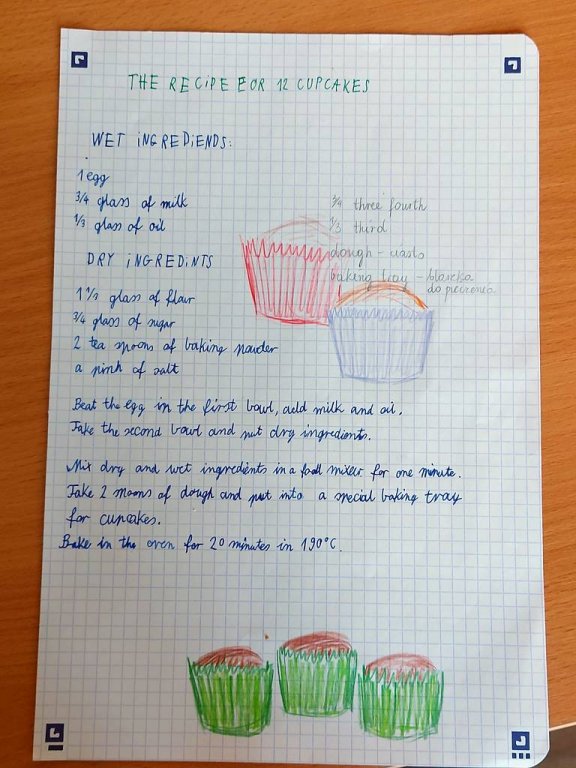 THE RECIPE FOR 12 CUPCAKES
WET INGREDIENDS:
1 egg
3/4 glass of milk
1/3 glass of oil
3/4 three fourth
1/3 third
dough - ciasto
baking tray - blaszka
do pieczenia
DRY INGREDINTS
1 1/3 glass of flour
3/4 glass of sugar
2 tea spoons of baking powder
a pink of salt
Beat the egg in the first bowl, add milk and oil.
Take the second bowl and put dry ingredients.
Mix dry and wet ingredients in a food mixer for one minute.
Take 2 spoons of dough and put into a special baking tray
for cupcakes.
Bake in the oven for 20 minutes in 190°C.